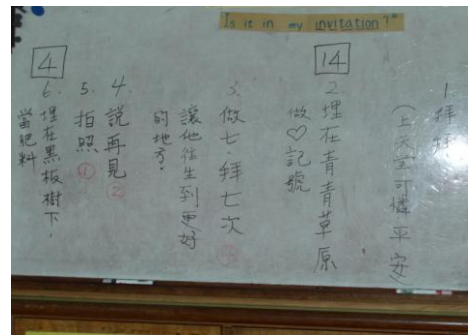 Is it in my invitation?"
1. 拜拜
(上天堂可憐平安)
14
2. 埋在青青草原
做♡記號
3. 做七.拜七次
③
讓他往生到更好
的地方.
4
4. 說再見
②
5. 拍照
①
6. 埋在黑板樹下.
當肥料